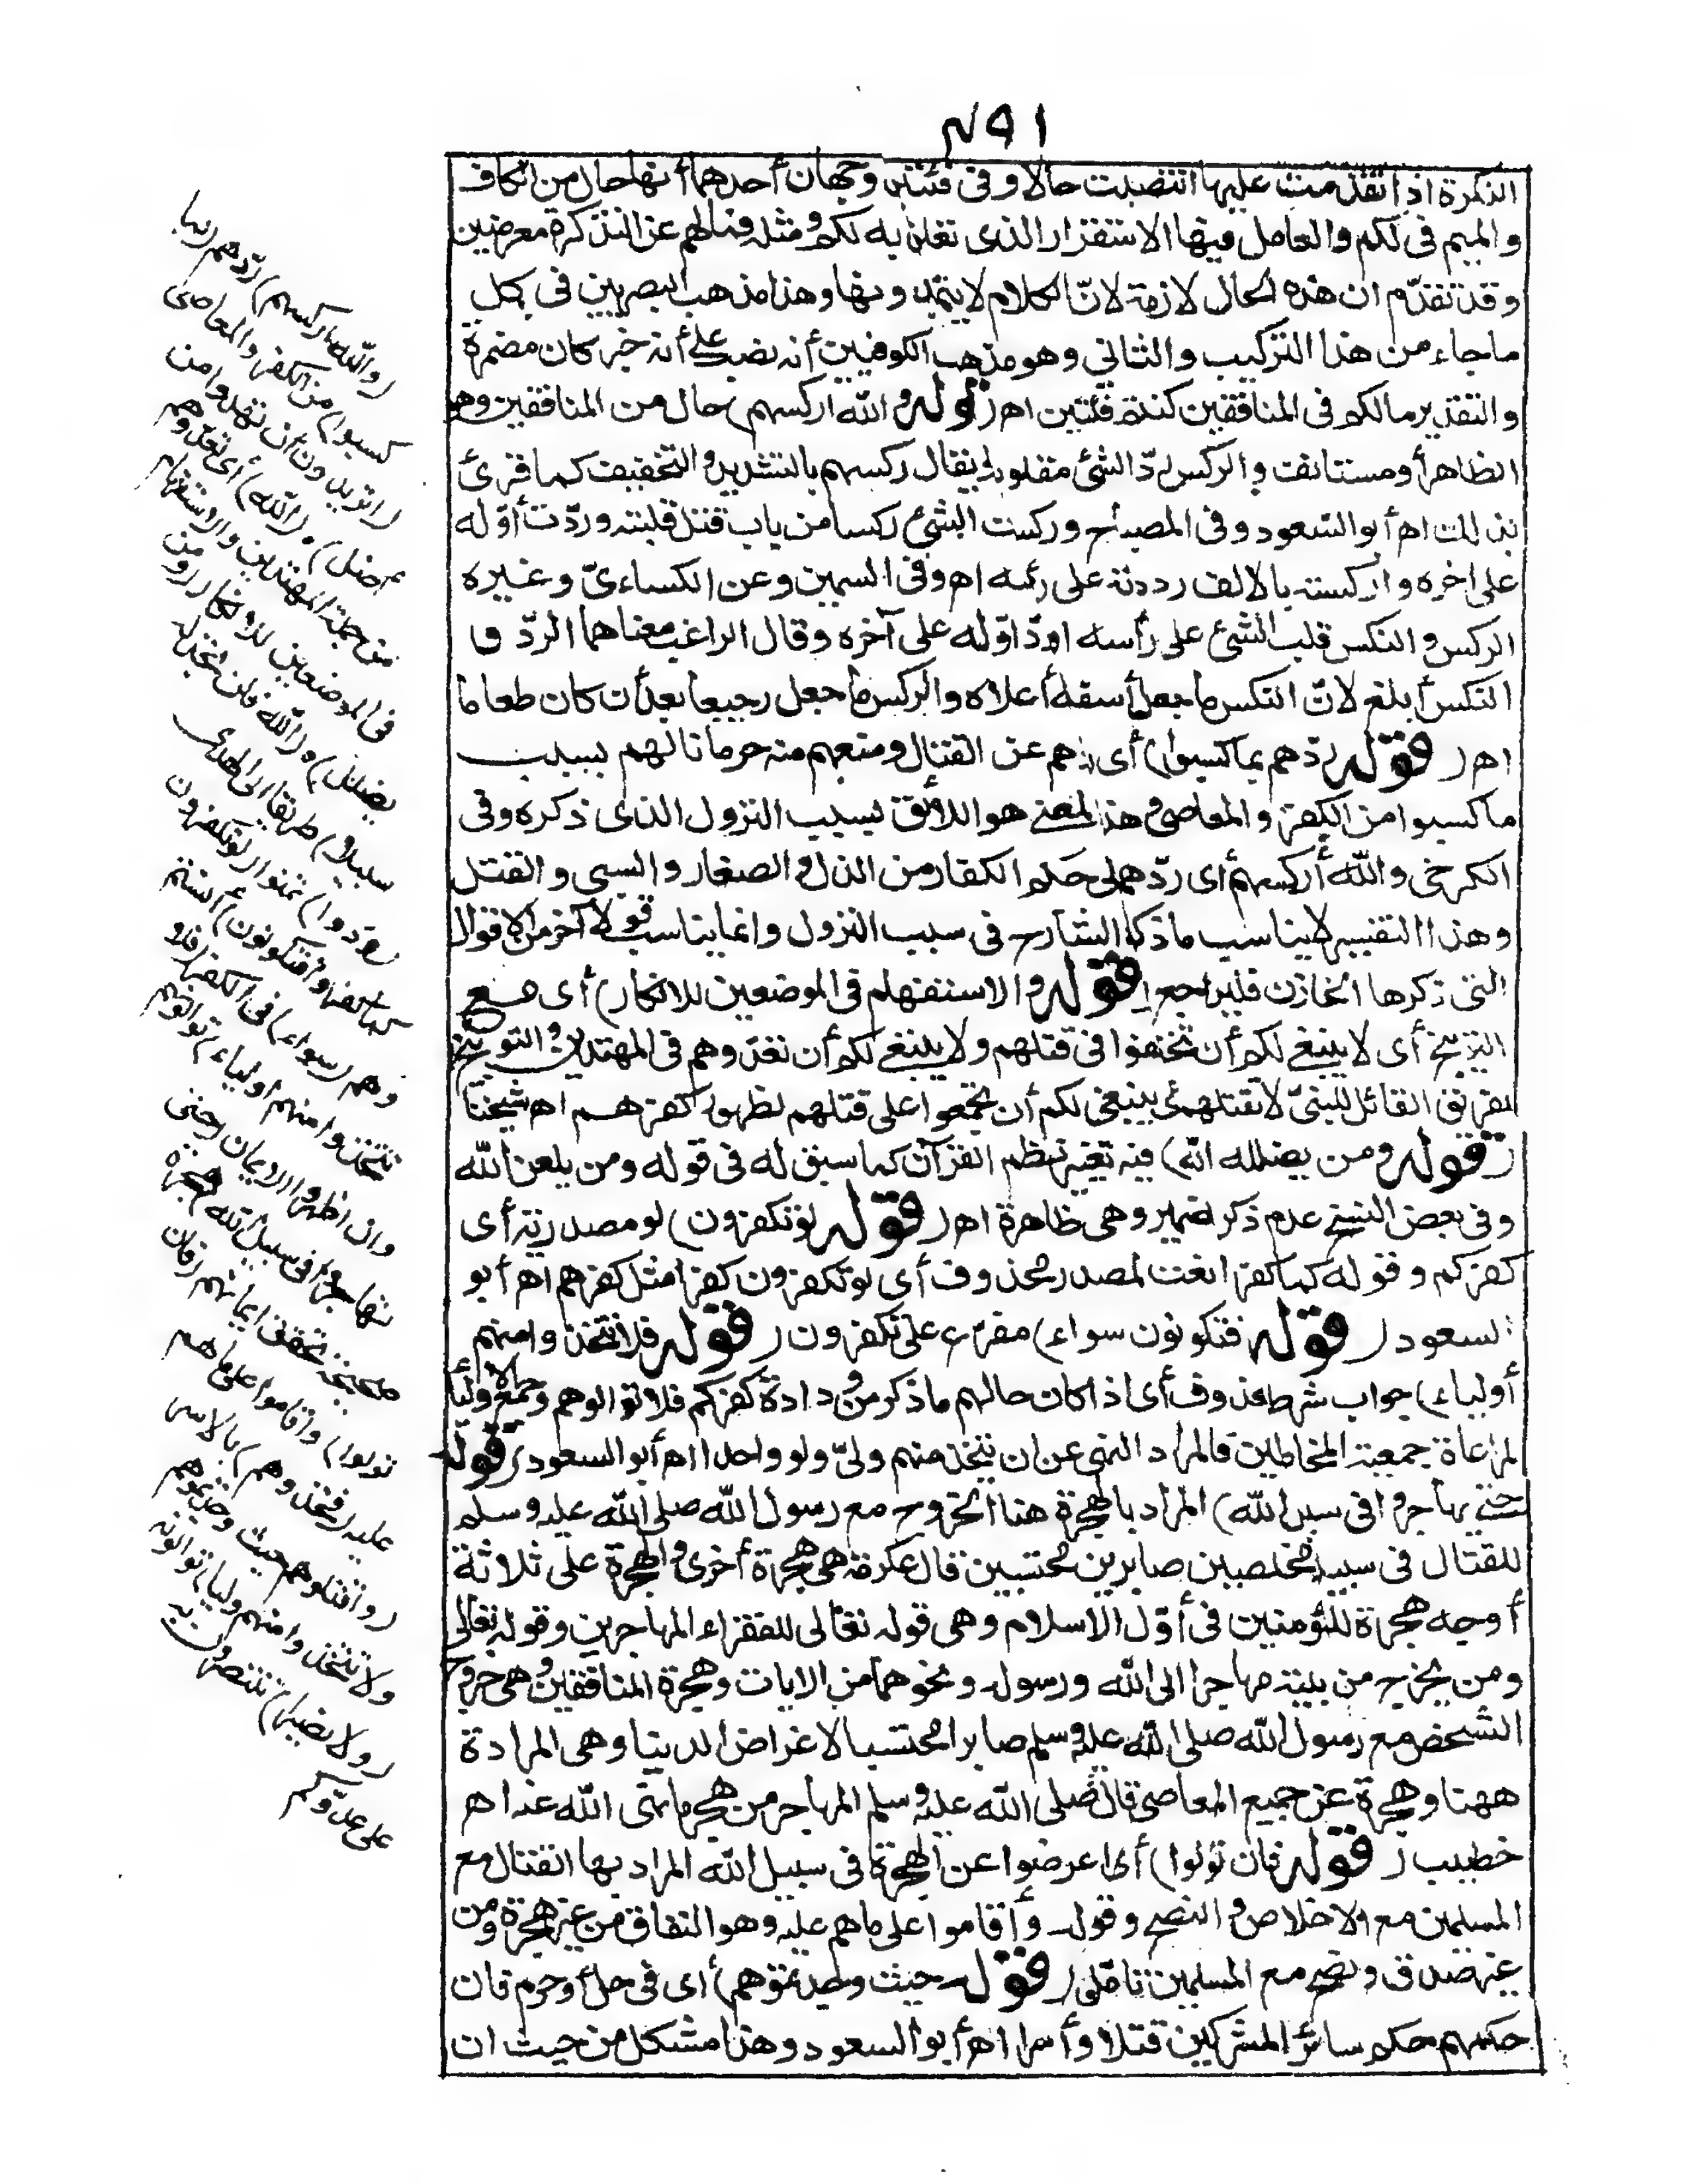 النكرة اذا تقدمت عليها انتصبت حالا وفى فئتين وجهان أحدهما أنها حال من الكاف
والميم فى لكم والعامل فيها الاستقرار الذى تعلق به لكم ومثله فما لهم عن التذكرة معرضين
وقد تقدّم ان هذه الحال لازمة لانّ الكلام لا يتم دونها وهذا مذهب البصريين فى كل
ما جاء من هذا التركيب والثانى وهو مذهب الكوفيين أنه نصب على أنه خبر كان مضمرة
والتقدير مالكم فى المنافقين كنتم فئتين اهـ (قوله والله أركسهم) حال من المنافقين وهو
الظاهر أو مستانف والركس ردّ الشئ مقلوبا يقال ركسهم بالتشديد والتخفيف كما قرئ
بذلك اهـ أبو السّعود وفى المصباح وركست الشئ ركسا من باب قتل قلبته ورددت أوّله
على اخره وأركسته بالالف رددته على رأسه اهـ وفى السمين وعن الكساءىّ وغيره
الركس والنكس قلب الشئ على رأسه أو ردّ اوّله على آخره وقال الراغب معناهما الردّ و
النكس أبلغ لانّ النكس ما جعل أسفله أعلاه والركس ما جعل رجيعا بعد أن كان طعاما
اهـ (قوله ردّهم بما كسبوا) أى ردّهم عن القتال ومنعهم منه حرمانا لهم بسبب
ما كسبوا من الكفر والمعاصى وهذا المعنى هو اللائق بسبب النزول الذى ذكره وفى
الكرخى والله أركسهم أى ردّهم الى حكم الكفار من الذل والصغار والسبى والقتل
وهذا التفسير لا يناسب ما ذكره الشارح فى سبب النزول وانما يناسب قولا آخر من الاقوال
التى ذكرها الخازن فليراجع (قوله والاستفهام فى الموضعين للانكار) أى مع
التوبيخ أى لا ينبغى لكم أن تختلفوا فى قتلهم ولا ينبغى لكم أن تعدّوهم فى المهتدين والتوبيخ
للفريق القائل للنبىّ لا تقتلهم ينبغى لكم أن تجمعوا على قتلهم لظهور كفرهم اهـ شيخنا
(قوله ومن يضلله الله) فيه تغيير نظم القرآن كما سبق له فى قوله ومن يلعن الله
وفى بعض النسخ عدم ذكر الضمير وهى ظاهرة اهـ (قوله لو تكفرون) لو مصدرية أى
كفركم وقوله كما كفروا نعت لمصدر محذوف أى لو تكفرون كفرا مثل كفرهم اهـ أبو
السعود (قوله فتكونون سواء) مفرّع على تكفرون (قوله فلا تتخذوا منهم
أولياء) جواب شرط محذوف أى اذا كان حالهم ما ذكر من ودادة كفركم فلا توالوهم وجمع أولياء
لمراعاة جمعية المخاطبين فالمراد النهى عن ان نتخذ منهم ولىّ ولو واحدا اهـ أبو السعود (قوله
حتى يهاجروا فى سبيل الله) المراد بالهجرة هنا الخروج مع رسول الله صلى الله عليه وسلم
للقتال فى سبيله مخلصين صابرين محتسبين قال عكرمة هى هجرة أخرى والهجرة على ثلاثة
أوجه هجرة للمؤمنين فى أوّل الاسلام وهى قوله تعالى للفقراء المهاجرين وقوله تعالى
ومن يخرج من بيته مهاجرا الى الله ورسوله ونحوهما من الايات وهجرة المنافقين وهى خروج
الشخص مع رسول الله صلى الله عليه وسلم صابرا محتسبا لا لاغراض الدنيا وهى المرادة
ههنا وهجرة عن جميع المعاصى قال صلى الله عليه وسلم المهاجر من هجر ما نهى الله عنه اهـ
خطيب (قوله فان تولوا) أى اعرضوا عن الهجرة فى سبيل الله المراد بها القتال مع
المسلمين مع الاخلاص والنصح وقوله وأقاموا على ما هم عليه وهو النفاق من غير هجرة ومن
غير صدق ونصح مع المسلمين تامّل (قوله حيث وجدتموهم) أى فى حل أو حرم فان
حكمهم حكم سائر المشركين قتلا وأسرا اهـ أبو السعود وهذا مشكل من حيث ان
(والله أركسهم) ردّهم (بما
كسبوا) من الكفر والمعاصى
(اتريدون أن تهدوا من
أضل) ه (الله) أى تعدّوهم
من جملة المهتدين والاستفهام
فى الموضعين للانكار (ومن
يضلل) ه (الله فلن تجد له
سبيلا) طريقا الى الهدى
(ودوا) تمنوا (لو تكفرون
كما كفروا فتكونون) أنتم
وهم (سواء) فى الكفر (فلا
تتخذوا منهم أولياء) توالونهم
وان اظهروا الايمان (حتى
يهاجروا فى سبيل الله) هجرة
صحيحة تحقق ايمانهم (فان
تولوا) واقاموا على ما هم
عليه (فخذوهم) بالاسر
(واقتلوهم حيث وجدتموهم
ولا تتخذوا منهم وليا) توالونه
(ولا نصيرا) تنتصرون به
على عدوّكم